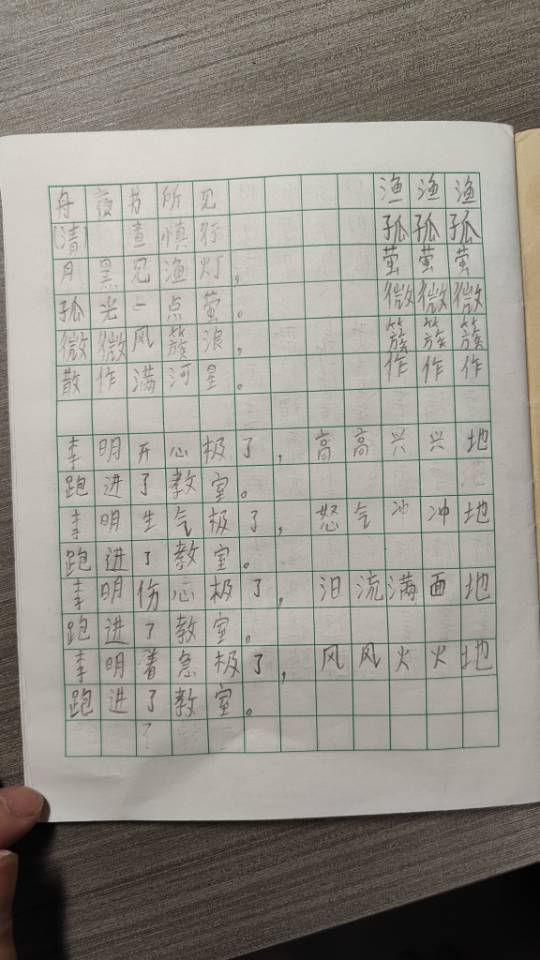 舟夜书所见 渔渔渔
(清) 查慎行 孤孤孤
月黑见渔灯, 萤萤萤
孤光一点萤。 微微微
微微风簇浪, 簇簇簇
散作满河星。 作作作
李明开心极了,高高兴兴地
跑进了教室。
李明生气极了,怒气冲冲地
跑进了教室。
李明伤心极了,泪流满面地
跑进了教室。
李明着急极了,风风火火地
跑进了教室。